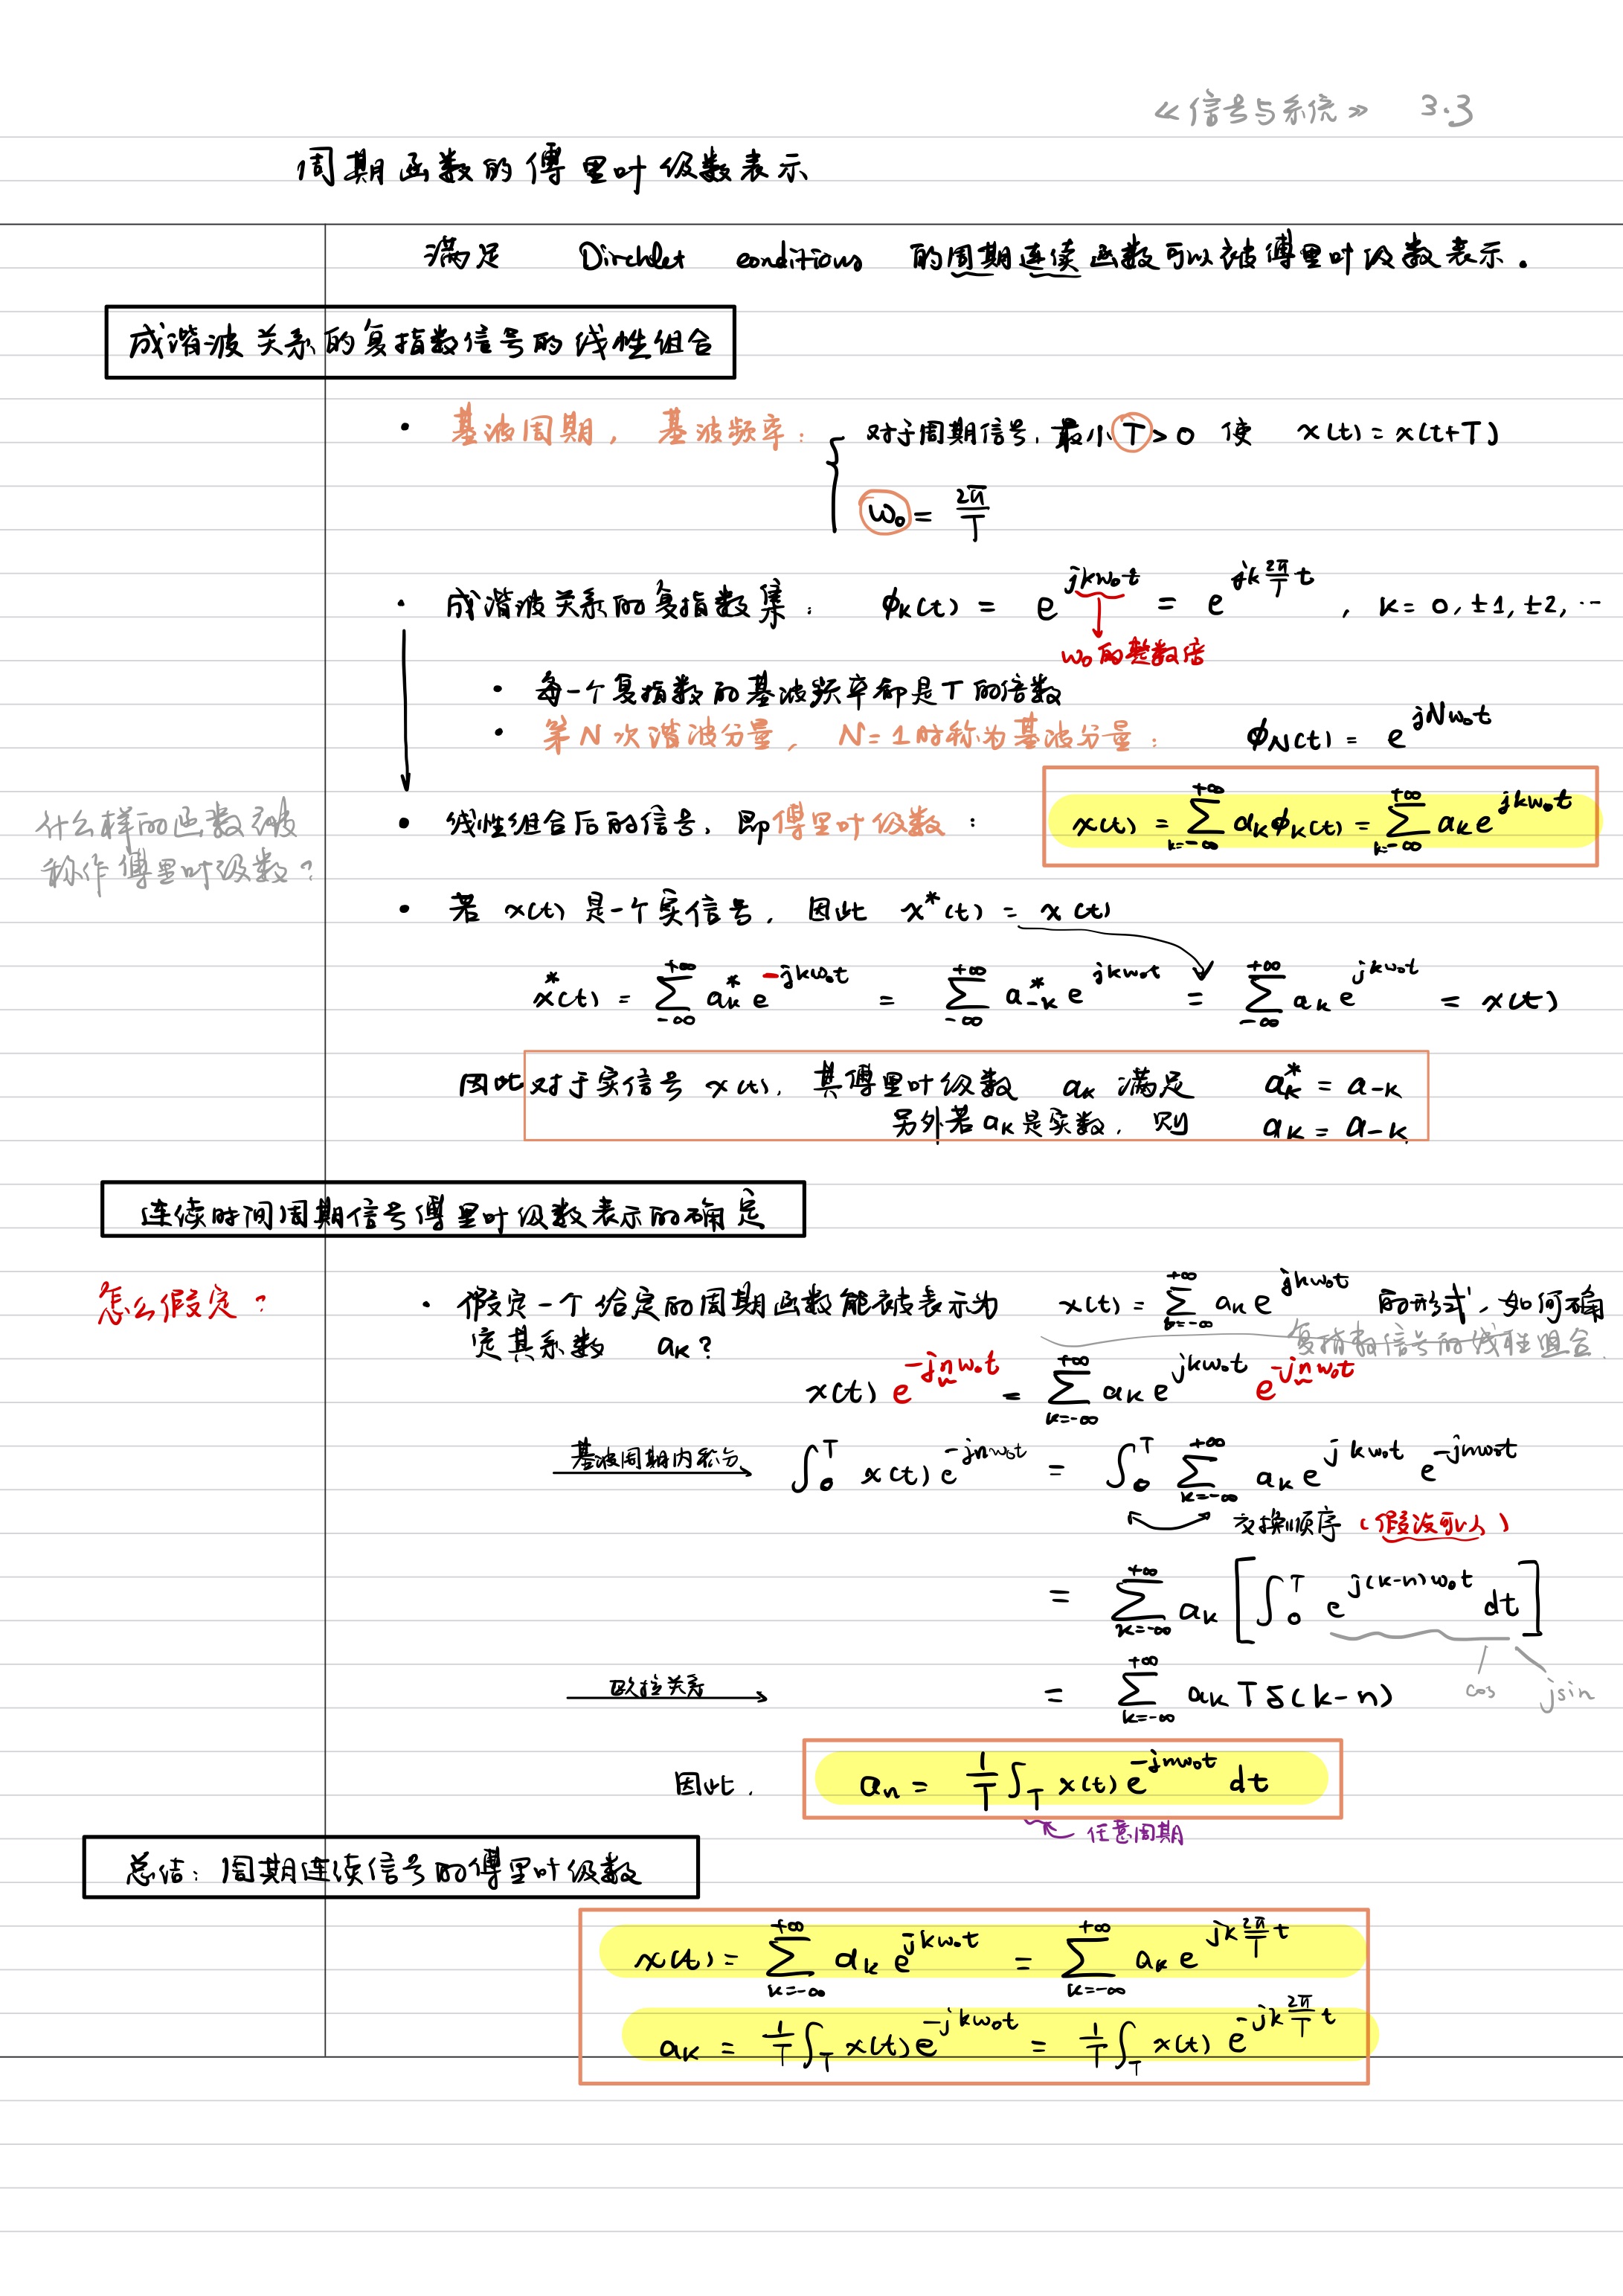 《信号与系统》 3.3
周期函数的傅里叶级数表示
满足 Dirchlet conditions 的周期连续函数可以被傅里叶级数表示.
成谐波关系的复指数信号的线性组合
· 基波周期, 基波频率: 对于周期信号, 最小 T > 0 使 x(t) = x(t+T)
ω₀ = 2π/T
· 成谐波关系的复指数集: ϕₖ(t) = e^{jkω₀t} = e^{jk(2π/T)t}, k = 0, ±1, ±2, …
ω₀的整数倍
· 每一个复指数的基波频率都是T的倍数
· 第N次谐波分量, N=1时称为基波分量: ϕ_N(t) = e^{jNω₀t}
什么样的函数被
称作傅里叶级数?
· 线性组合后的信号, 即傅里叶级数: x(t) = ∑_{k=-∞}^{+∞} aₖϕₖ(t) = ∑_{k=-∞}^{+∞} aₖe^{jkω₀t}
· 若 x(t) 是一个实信号, 因此 x*(t) = x(t)
x*(t) = ∑_{-∞}^{+∞} aₖ* e^{-jkω₀t} = ∑_{-∞}^{+∞} a₋ₖ* e^{jkω₀t} = ∑_{-∞}^{+∞} aₖ e^{jkω₀t} = x(t)
因此对于实信号 x(t), 其傅里叶级数 aₖ 满足 aₖ* = a₋ₖ
另外若 aₖ 是实数, 则 aₖ = a₋ₖ
连续时间周期信号傅里叶级数表示的确定
怎么假定?
· 假定一个给定的周期函数能被表示为 x(t) = ∑_{k=-∞}^{+∞} aₖ e^{jkω₀t} 的形式, 如何确
定其系数 aₖ?
复指数信号的线性组合.
x(t) e^{-jnω₀t} = ∑_{k=-∞}^{+∞} aₖ e^{jkω₀t} e^{-jnω₀t}
基波周期内积分 ∫₀^T x(t) e^{-jnω₀t} = ∫₀^T ∑_{k=-∞}^{+∞} aₖ e^{jkω₀t} e^{-jnω₀t}
交换顺序 (假设可以)
= ∑_{k=-∞}^{+∞} aₖ [∫₀^T e^{j(k-n)ω₀t} dt]
cos jsin
欧拉关系 = ∑_{k=-∞}^{+∞} aₖ T δ(k-n)
因此. aₙ = 1/T ∫_T x(t) e^{-jnω₀t} dt
任意周期
总结: 周期连续信号的傅里叶级数
x(t) = ∑_{k=-∞}^{+∞} aₖ e^{jkω₀t} = ∑_{k=-∞}^{+∞} aₖ e^{jk(2π/T)t}
aₖ = 1/T ∫_T x(t) e^{-jkω₀t} = 1/T ∫_T x(t) e^{-jk(2π/T)t}